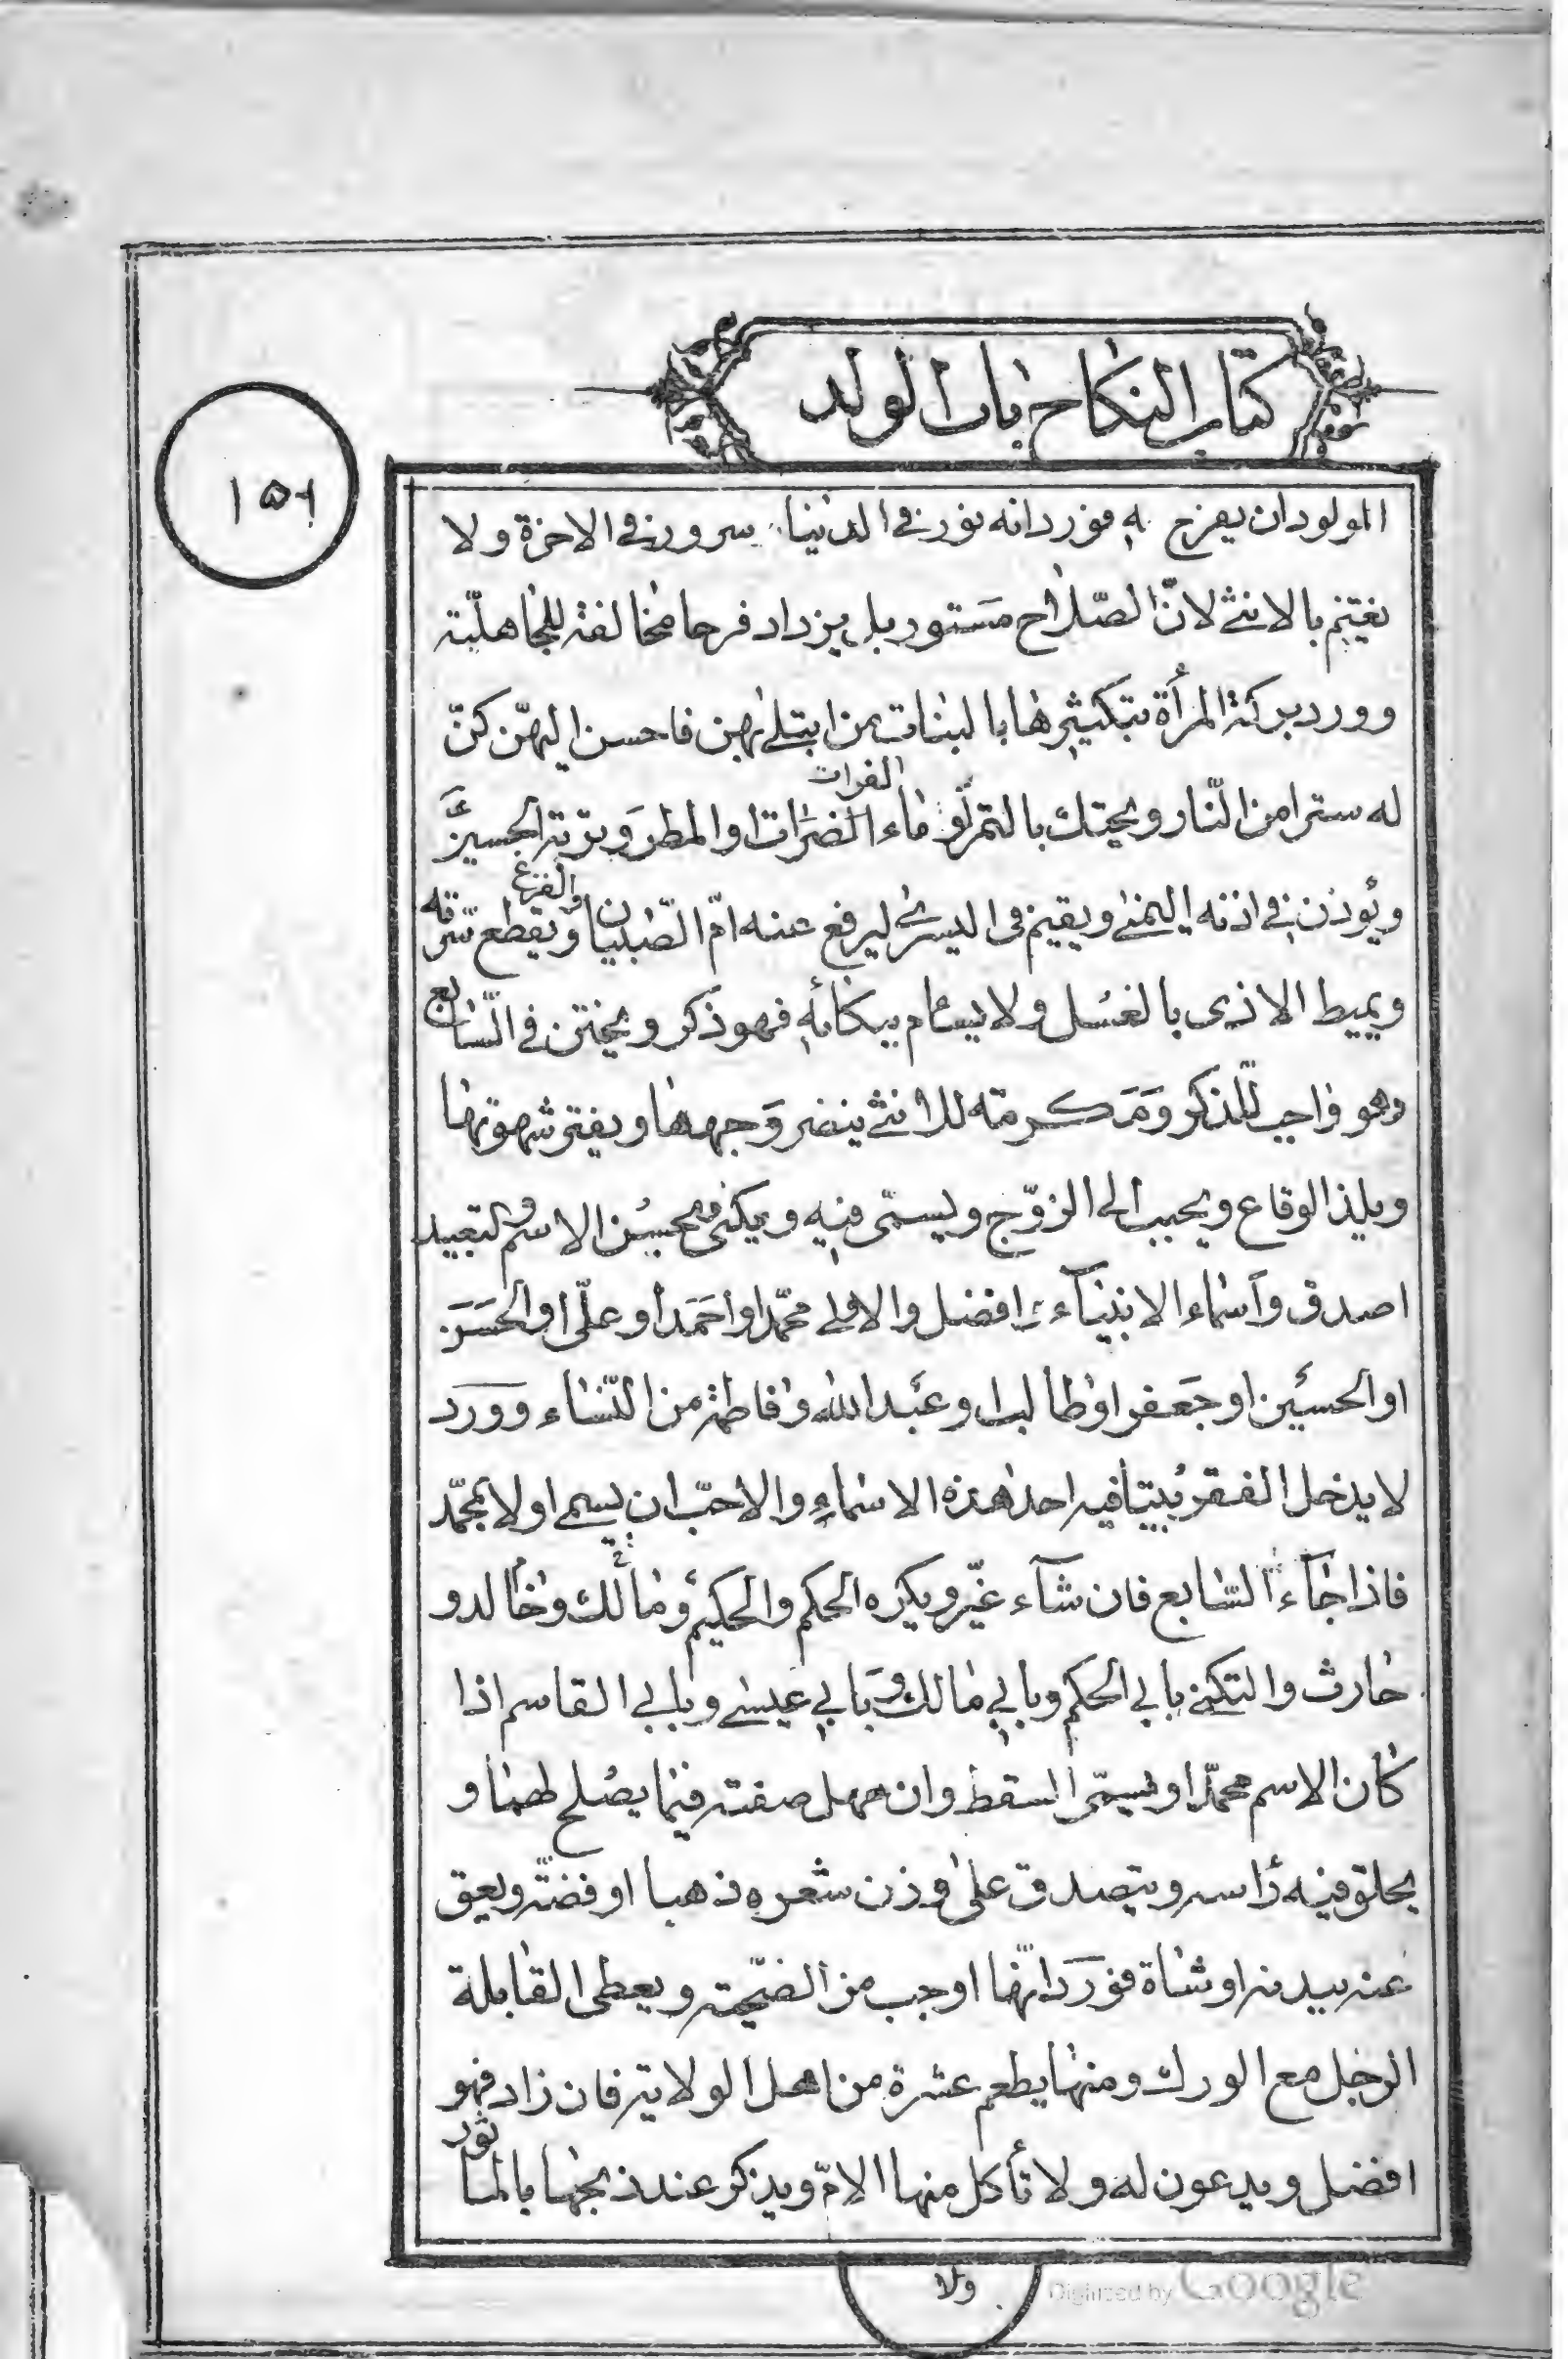 كتاب النكاح باب الولد
١٥٦
المولود ان يفرح به فورد انه نور في الدنيا سرور في الاخرة ولا
يغتم بالانثى لانّ الصّلاح مستور بل يزداد فرحا مخالفة للجاهليّة
وورد بركة المرأة تبكيرها بالبنات من ابتلى بهن فاحسن اليهنّ كنّ
له سترا من النّار ويحنك بالتمر او ماء الفرات او المطر وتربة الحسين ع
ويؤذن في اذنه اليمنى ويقيم في اليسرى ليرفع عنه امّ الصّبيان والفزع ويقطع سرّته
ويميط الاذى بالغسل ولا يسأم ببكائه فهو ذكر ويختن في السّابع
وهو واجب للذكر ومكرمة للانثى ينضر وجهها ويفتر شهوتها
ويلذ الوقاع ويحبب الى الزوج ويسمّى فيه ويكنى فيحسن الاسم والتعبيد
اصدق واسماء الانبياء افضل والاولى محمّد او احمد او علّى او الحسن
او الحسين او جعفر او طالب او عبد الله و فاطمة من النّساء وورد
لا يدخل الفقر بيتا فيه احد هذه الاسماء والاحبّ ان يسمى اولا بمحمّد
فاذا جآء السّابع فان شآء غيّر ويكره الحكم والحكيم ومالك وخالد و
حارث والتكنى بابي الحكم وبابي مالك وبابي عيسى وبابي القاسم اذا
كان الاسم محمّدا ويسمّى السقط وان جهل صفته فبما يصلح لهما و
يحلق فيه رأسه ويتصدق على وزن شعره ذهبا او فضّة ويعق
عنه ببدنة او شاة فورد انّها اوجب من الضّحيّة ويعطى القابلة
الرجل مع الورك ومنها يطعم عشرة من اهل الولاية فان زاد فهو
افضل ويدعون له ولا تأكل منها الامّ ويذكر عند ذبحها بالمأثور
ولا
Digitized by Google